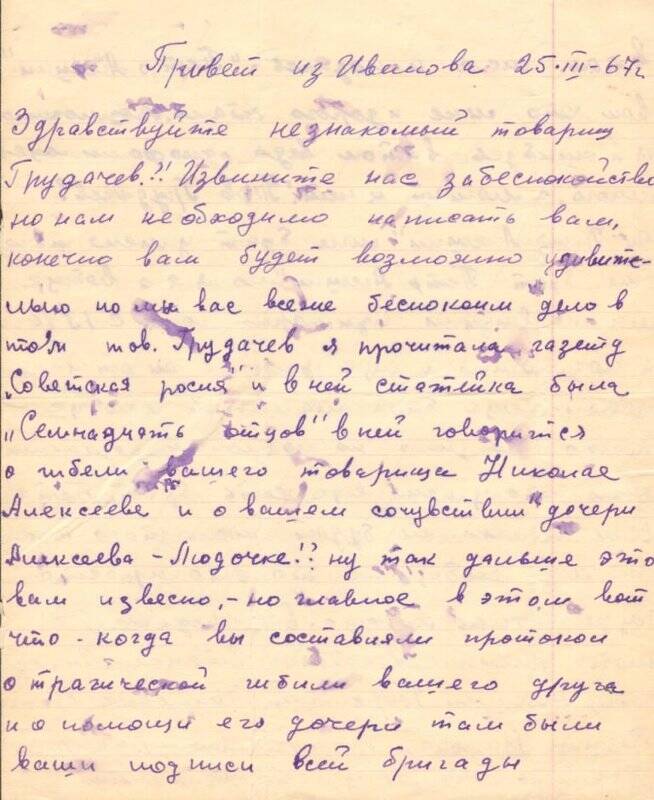 Привет из Иванова 25.III-67г
Здравствуйте незнакомый товарищ
Грудачев.?! Извините нас забеспокойство
но нам необходимо написать вам,
конечно вам будет возможно удивите-
льно но мы вас всеже беспокоим дело в
том тов. Грудачев я прочитала газету
„Советская росия" и в ней статейка была
„Семнадцать отцов" в ней говорится
о гибели вашего товарища Николае
Алексееве и о вашем сочувствии дочери
Алексеева - Людочке!? ну так дальше это
вам извесно, - но главное в этом вот
что - когда вы составляли протокол
о трагической гибили вашего друга
и о помощи его дочери там были
ваши подписи всей бригады